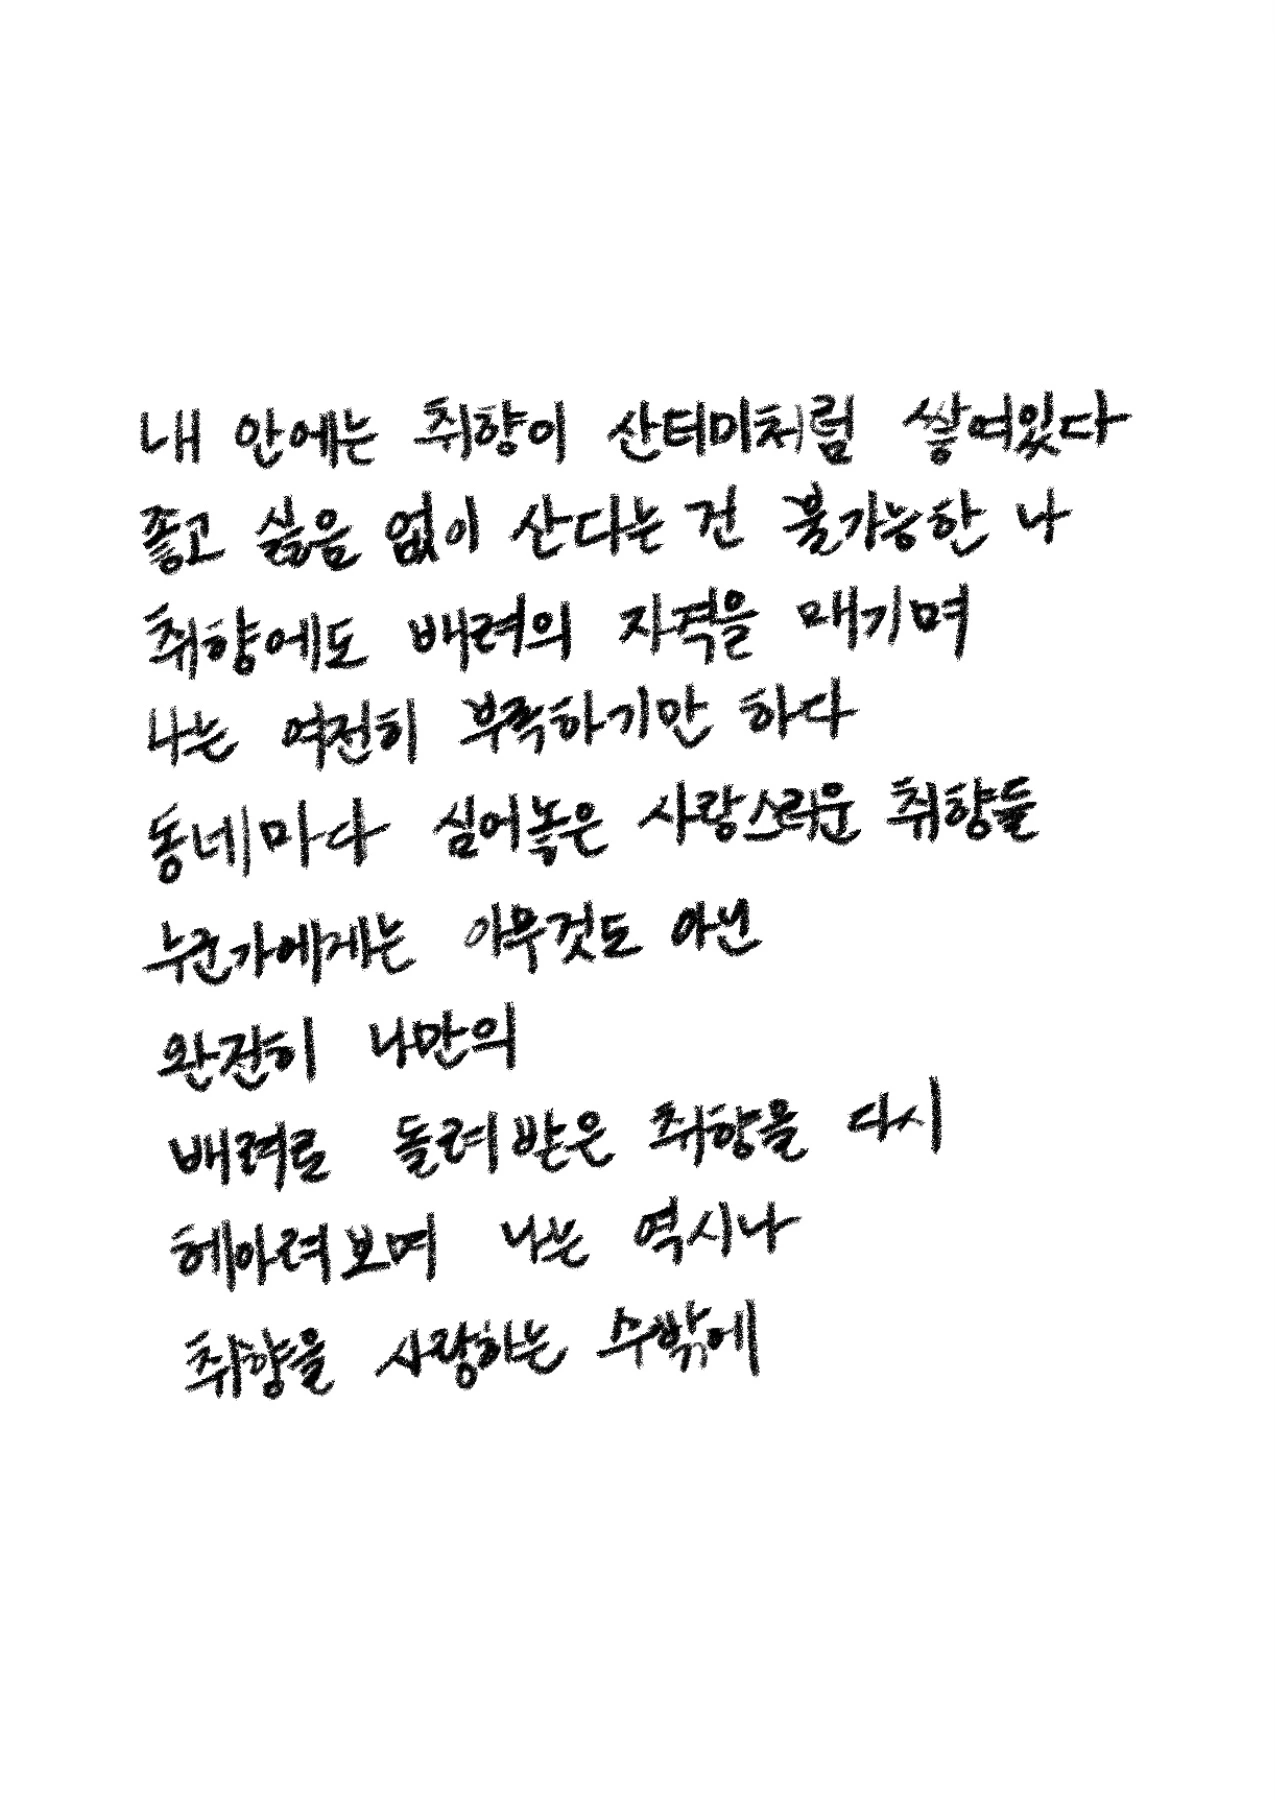 내 안에는 취향이 산더미처럼 쌓여있다
좋고 싫음 없이 산다는 건 불가능한 나
취향에도 배려의 자격을 매기며
나는 여전히 부족하기만 하다
동네마다 심어놓은 사랑스러운 취향들
누군가에게는 아무것도 아닌
완전히 나만의
배려로 돌려받은 취향을 다시
헤아려보며 나는 역시나
취향을 사랑하는 수밖에